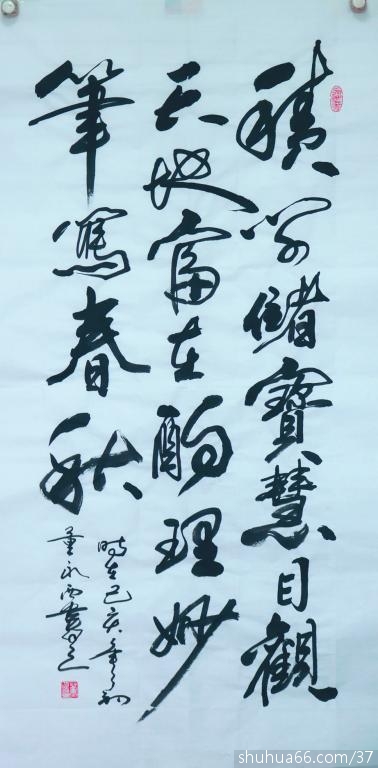 積學儲寶慧目觀
天地富在酌理妙
筆寫春秋
時在己亥年之初
董永西書
shuhua66.com/37